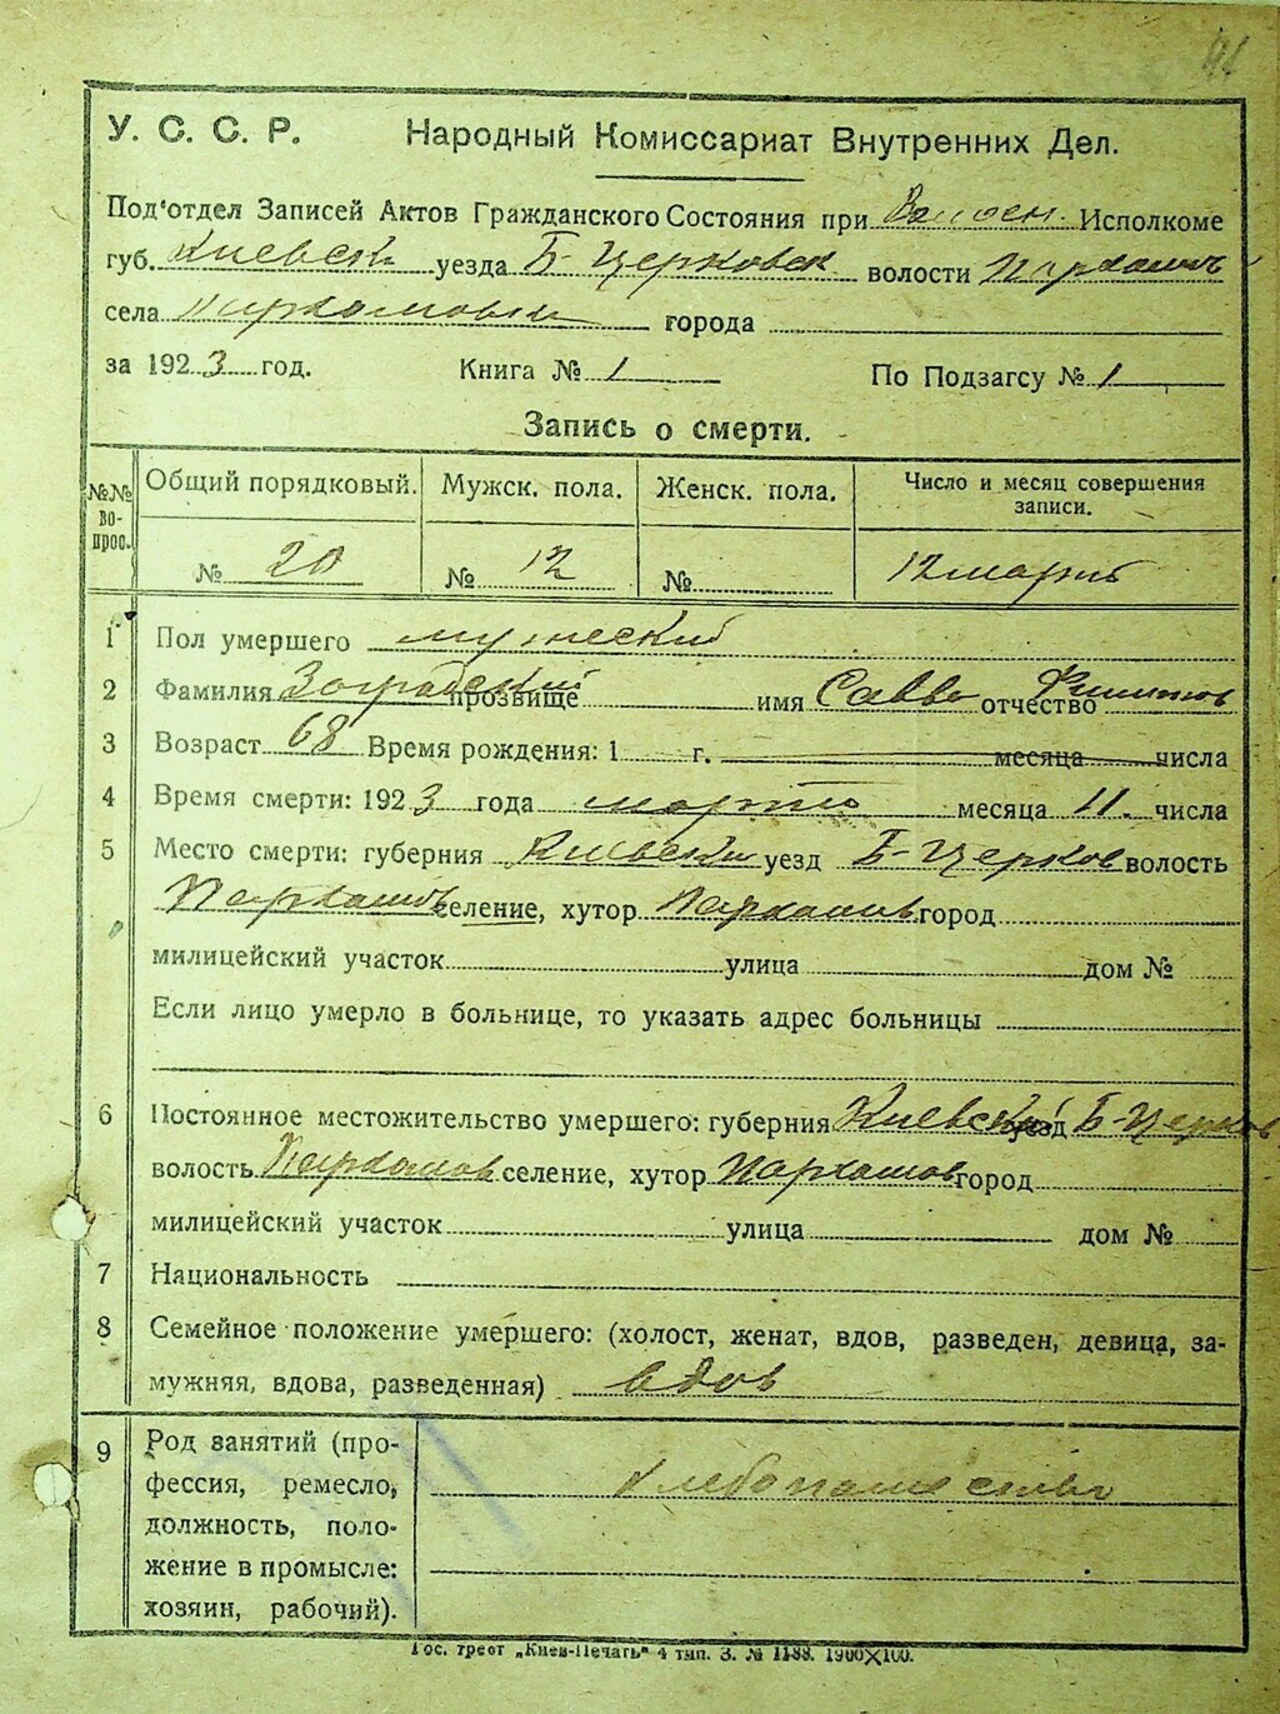 У. С. С. Р. Народный Комиссариат Внутренних Дел.
Под'отдел Записей Актов Гражданского Состояния при Исполкоме
губ. Киевск уезда Б-Церковск волости Пархомов
села Пархомовки города
за 1923 год. Книга № 1 По Подзагсу № 1
Запись о смерти.
№№ вопрос. Общий порядковый. Мужск. пола. Женск. пола. Число и месяц совершения записи.
№ 20 № 12 № 12 марта
1 Пол умершего мужеский
2 Фамилия прозвище имя Савва отчество Филипов
3 Возраст 68 Время рождения: 1 г. месяца числа
4 Время смерти: 1923 года марта месяца 11. числа
5 Место смерти: губерния Киевски уезд Б-Церков волость
Пархомов селение, хутор Пархомов город
милицейский участок улица дом №
Если лицо умерло в больнице, то указать адрес больницы
6 Постоянное местожительство умершего: губерния Киевский уезд Б-Церков
волость Пархомов селение, хутор Пархомов город
милицейский участок улица дом №
7 Национальность
8 Семейное положение умершего: (холост, женат, вдов, разведен, девица, за-
мужняя, вдова, разведенная) вдов
9 Род занятий (про-
фессия, ремесло, хлебопашество
должность, поло-
жение в промысле:
хозяин, рабочий).
Гос. трест „Киев-Печать" 4 тип. З. № 1188. 1900×100.